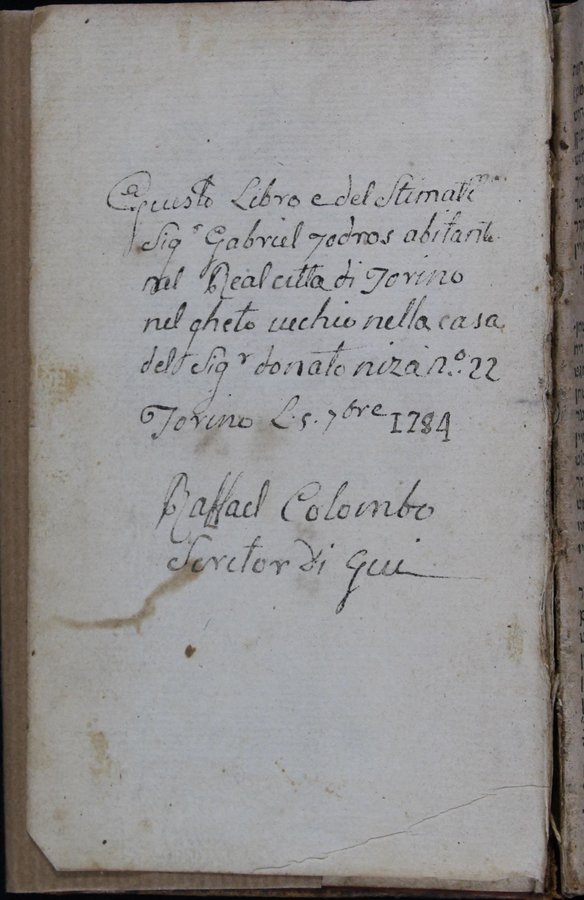 Questo Libro e del Stimatis.mo
Sig.r Gabriel Todros abitante
nel Real citta di Torino
nel gheto vechio nella casa
del Sig.r donato niza n.o 22
Torino L. 5. 7bre 1784
Raffael Colombo
Scritor di Qui